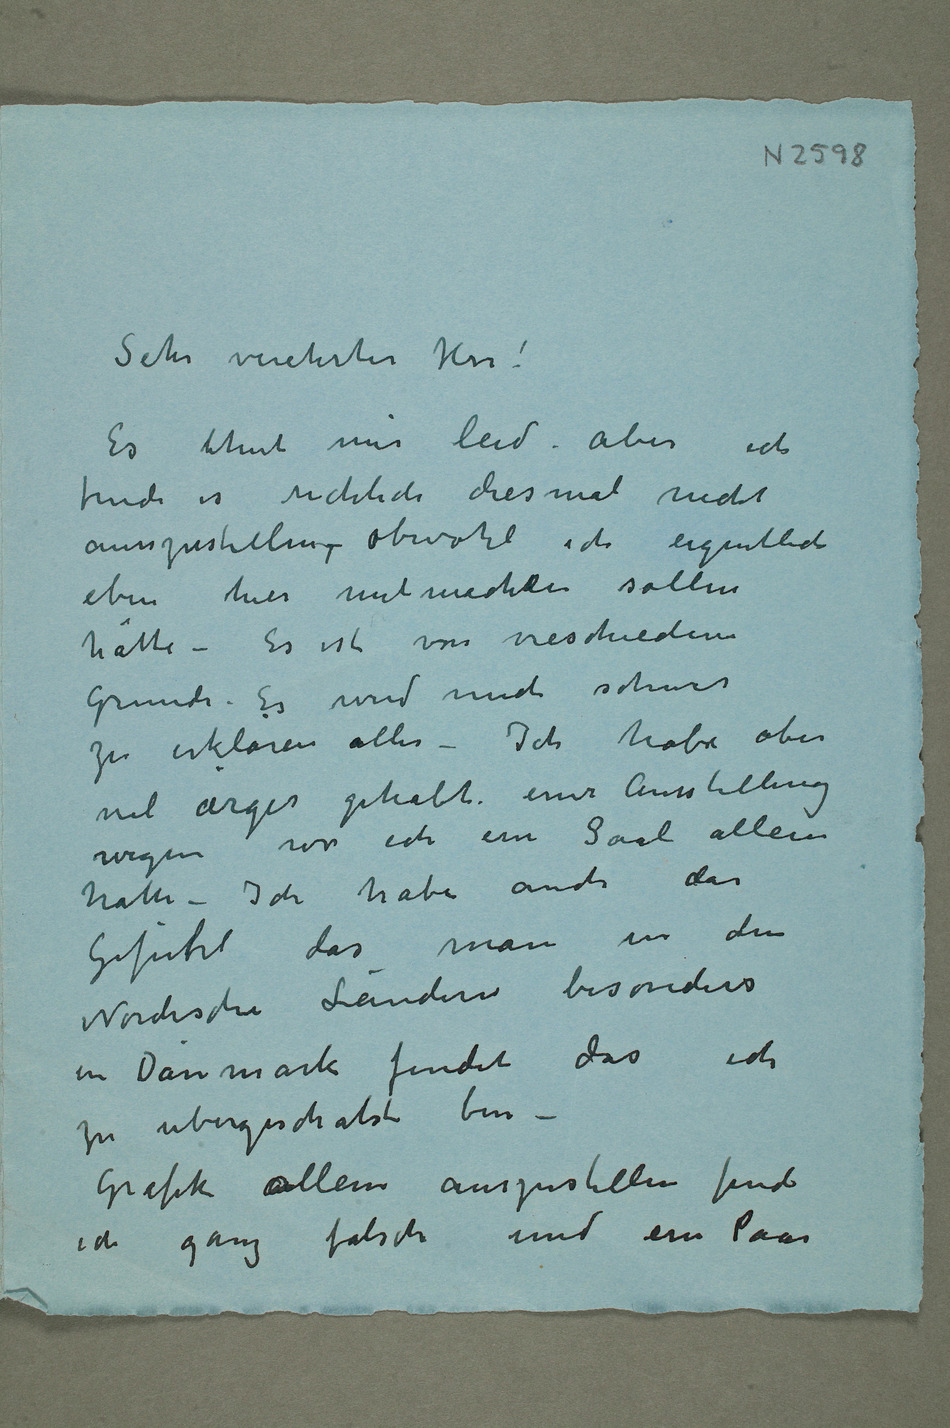 N 2598
Sehr verehrter Herr!
Es thut mir leid. aber ich
finde es richtich diesmal nicht
auszustellen, obwohl ich eigentlich
eben hier mitmachen sollen
hätte – Es ist von vieschiedene
Grunde. Es wird mich schwer
zu erklären alles – Ich habe aber
viel ärger gehabt. einer Ausstellung
wegen wo ich ein Saal allein
hatte – Ich habe auch das
Gefühl das man in den
Nordische Ländern besonders
in Dänmark findet das ich
zu ubergeschatst bin –
Grafik allein auszustellen find
ich ganz falsch und ein Paar